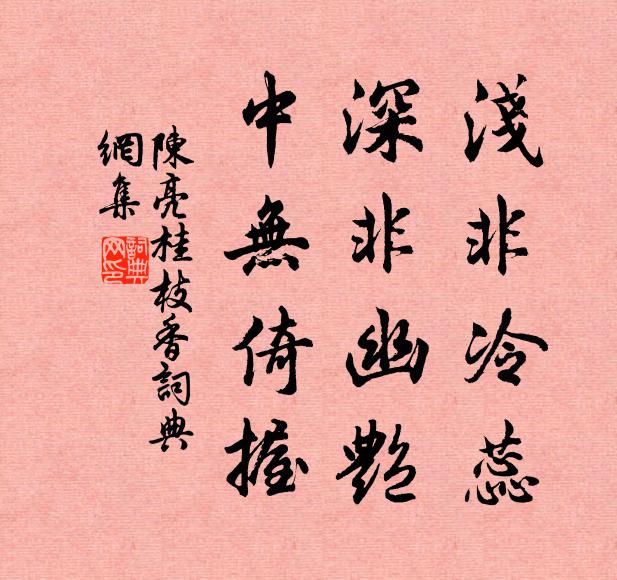 淺非冷蕊
深非幽艷
中無倚握
陳亮桂枝香詞典
網集
詞典網印